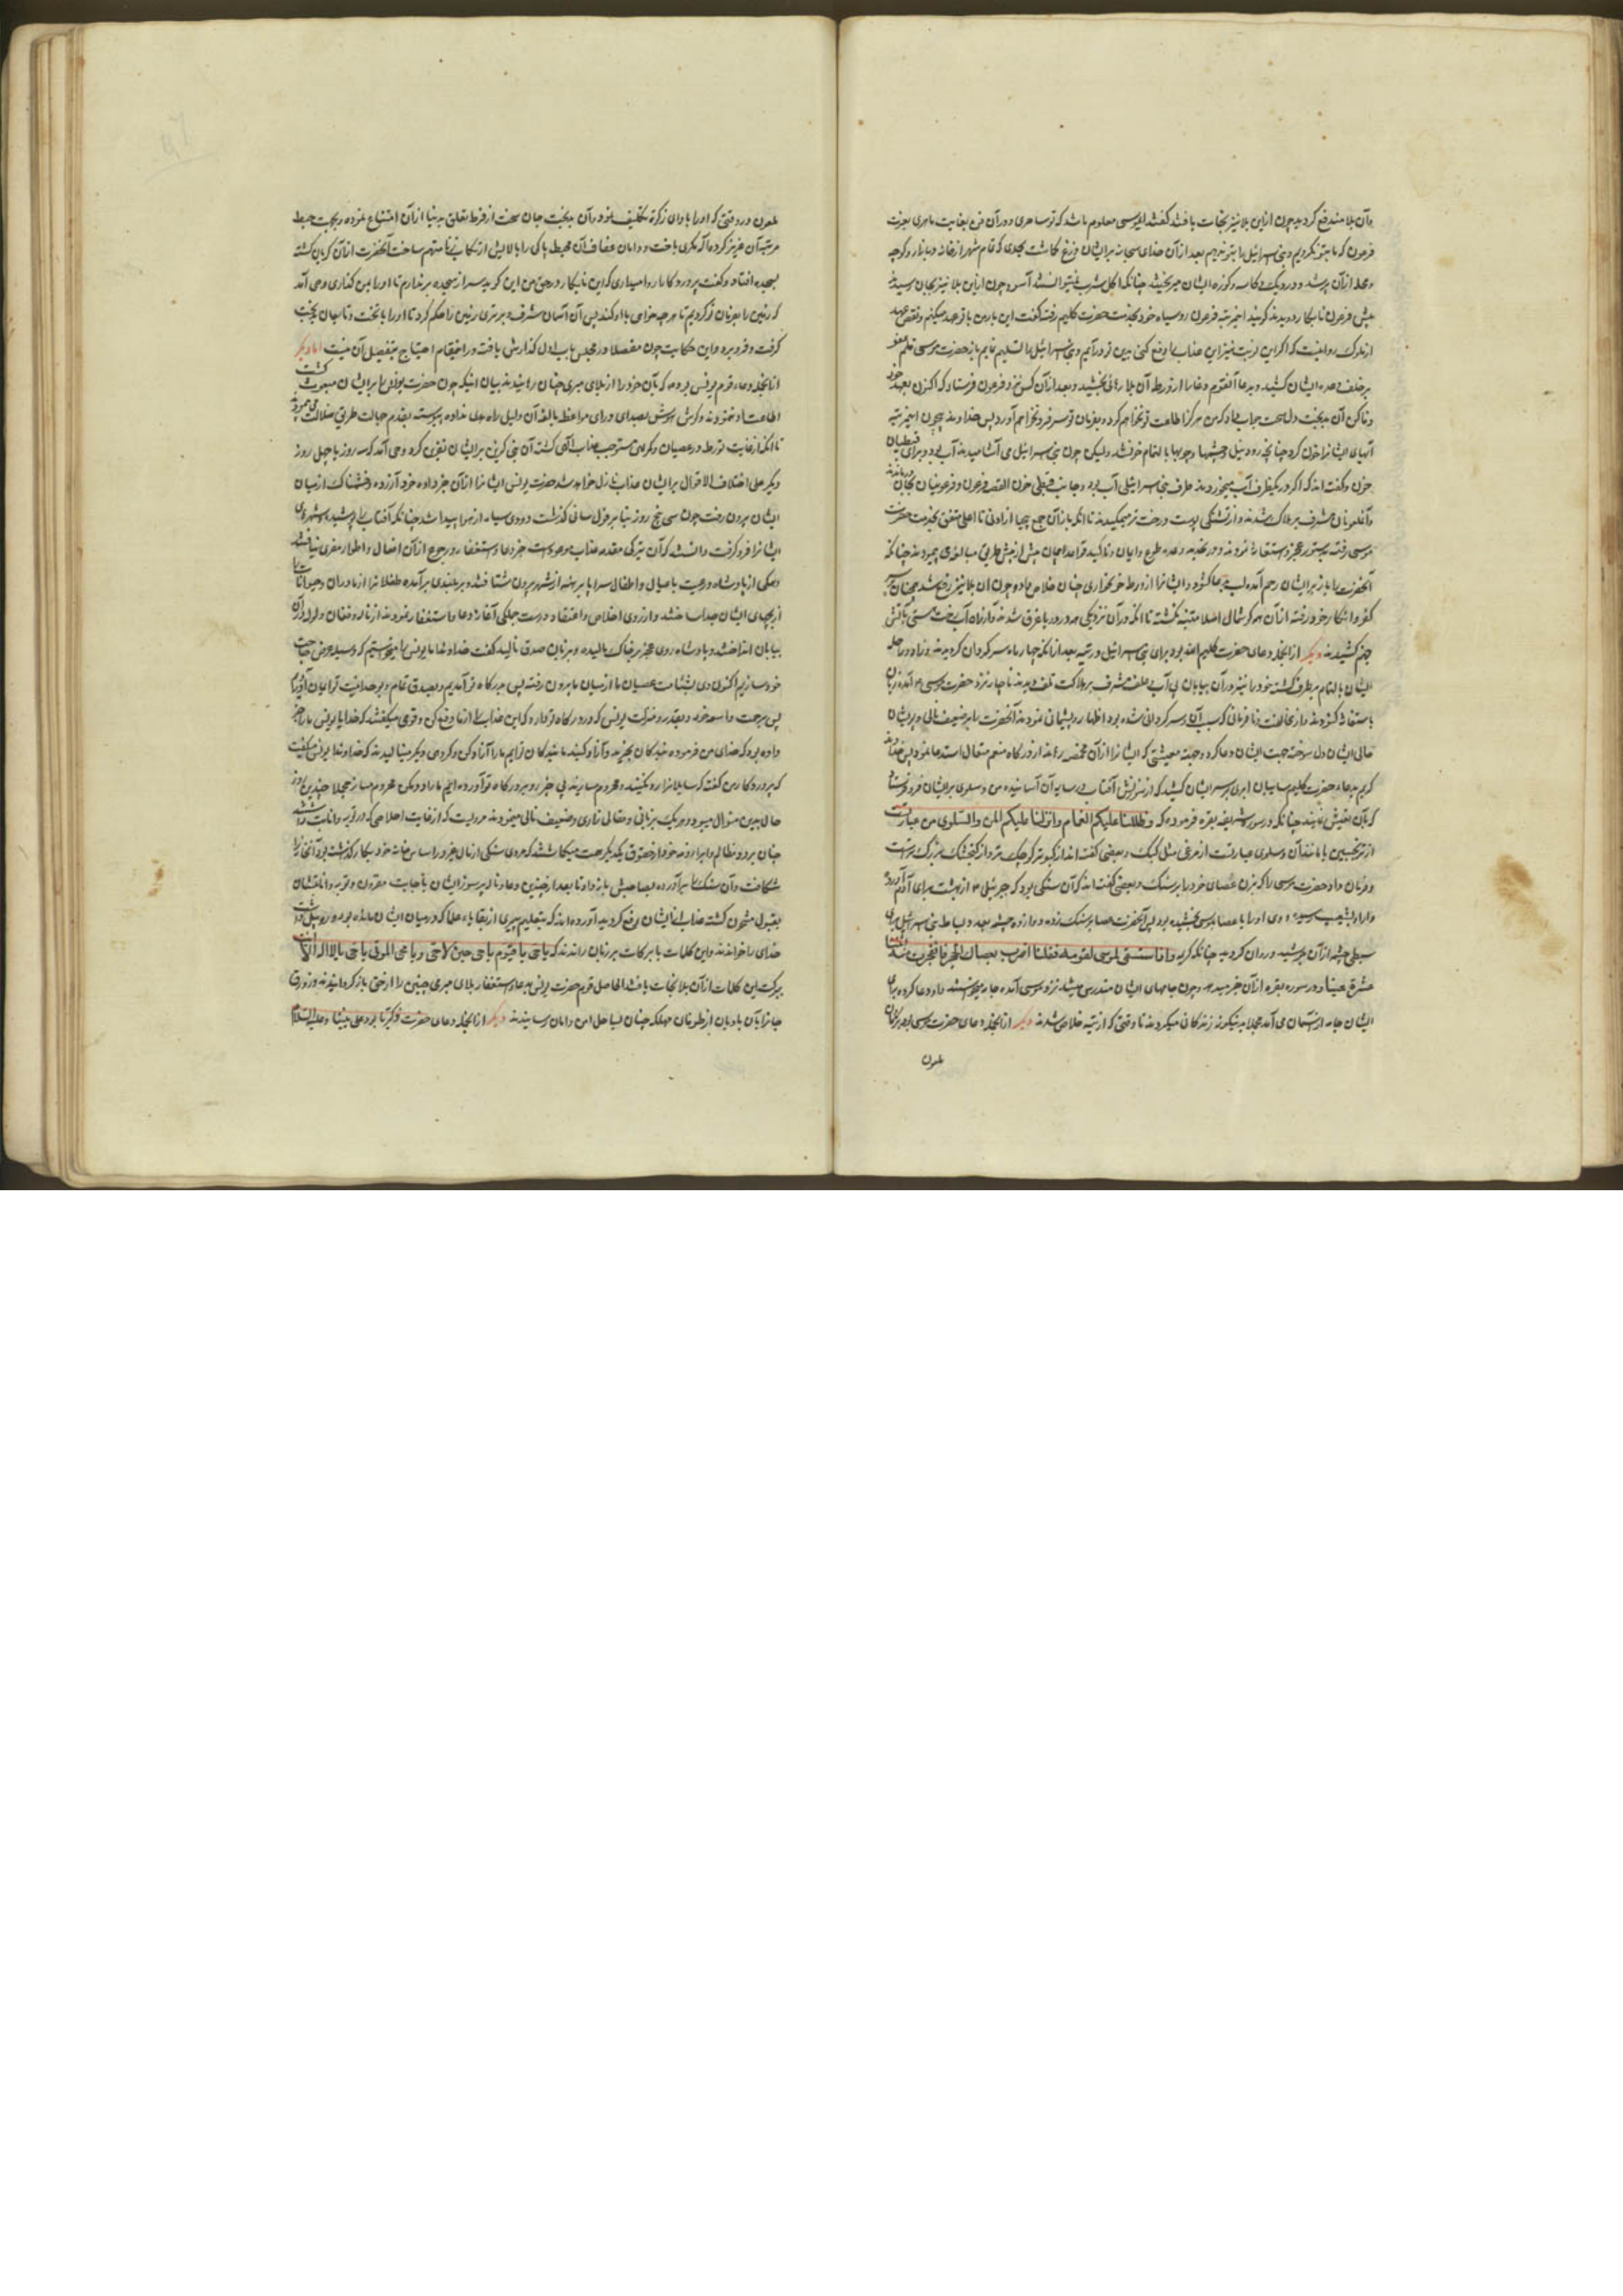 وآن بلا مندفع گردید چون ازین بلا نیز نجات یافتند گفتند ای موسی معلوم ما شد که تو ساحری و در آن فن بغایت ماهری بعزت
فرعون که ما بتو نگرویم و بنی اسرائیل را بتو ندهیم بعد از آن خدای سبحانه بر ایشان وزغ گماشت بحدی که تمام شهر از خانه و بازار و کوچه
و محله از آن پر شد و در دیگ و کاسه و کوزه ایشان میریختند چنانکه اکل و شرب نمیتوانستند آسود چون ازین بلا نیز بجان رسیدند
پیش فرعون نابکار دویدند گویند این مرتبه فرعون روسیاه خود بخدمت حضرت کلیم رفته گفت این بار من با تو عهد میکنم و نقض عهد
از ملوک روا نیست که اگر این نوبت نیز این عذاب را دفع کنی بدین تو درآیم و بنی اسرائیل را تسلیم نمایم باز حضرت موسی قلم عفو
بر خلف وعده ایشان کشید و بدعا آنقوم دغا را از ورطه آن بلا رهائی بخشید و بعد از آن کس نزد فرعون فرستاد که اکنون بعهد خود
وفا کن آن بدبخت دل سخت جواب داد که من هرگز اطاعت تو نخواهم کرد و بفرمان تو سر فرو نخواهم آورد پس خداوند بیچون این مرتبه
آبهای ایشانرا خون کرد چنانچه رود نیل و چشمها و جویها بالتمام خون شد ولیکن چون بنی اسرائیل می آشامیدند آب بود و برای قبطیان
خون و گفته اند که اگر در یکظرف آب میخوردند طرف بنی اسرائیلی آب بود و جانب قبطی خون القصه فرعون و فرعونیان بجان
وآنملعونان مشرف بر هلاک شدند و از تشنگی پوست درخت تر میمکیدند تا آنکه باز آن جمع بیحیا از ادنی تا اعلی متفق بخدمت حضرت
موسی رفته بدستور عجز و استغاثه نمودند
آنحضرت را باز بر ایشان رحم آمده لب بدعا گشود و ایشانرا از ورطه خونخواری چنان خلاص داد و چون آن بلا نیز رفع شد
کفر و انکار خود رفته از آن همه گوشمال اصلا متنبه نگشته تا آنکه در آن نزدیکی همه در دریا غرق شدند و از راه آب رخت هستی بآتش
جهنم کشیدند دیگر از آنجمله دعای حضرت کلیم الله بود برای بنی اسرائیل در تیه بعد از آنکه چهار ماه سرگردان گردیدند و زاد و راحله
ایشان بالتمام برطرف گشته خود را نیز در آن بیابان بی آب و علف مشرف بر هلاکت و تلف دیدند ناچار نزد حضرت موسی ع آمده زبان
باستغاثه گشودند و از مخالفت و نافرمانی که سبب آن سرگردانی شده بود اظهار پشیمانی نمودند آنحضرت را بر ضعیف نالی و پریشان
حالی ایشان دل سوخته جهت ایشان دعا کرد و وجه معیشتی که ایشانرا از آن مخمصه رهاند از درگاه منعم متعال استدعا نمود پس خداوند
کریم بدعاء حضرت کلیم سایبان ابری بر سر ایشان کشید که از سوزش آفتاب در سایه آن آسایند و من و سلوی بر ایشان فرو فرستاد
که بآن تعیش نمایند چنانکه در سوره شریفه بقره فرموده که وظللنا علیکم الغمام وانزلنا علیکم المن والسلوی من عبارتست
از ترنجبین یا مانند آن و سلوی عبارتست از مرغی مثل کبک و بعضی گفته اند از کبوتر کوچک تر و از گنجشک بزرگ تر است
و فرمان داد حضرت موسی را که بزن عصای خود را بر سنگ و بعضی گفته اند که آن سنگی بود که جبرئیل ع از بهشت برای آدم آورده
و او را بشعیب رسیده و وی او را با عصا بموسی بخشیده بود پس آنحضرت عصا بر سنگ زده و دوازده چشمه بعدد اسباط بنی اسرائیل برای هر
سبطی چشمه از آن جوشید و روان گردید چنانکه کریمه واذ استسقی لموسی لقومه فقلنا اضرب بعصاک الحجر فانفجرت منه اثنتا
عشرة عینا در سوره بقره از آن خبر میدهد و چون جامهای ایشان مندرس میشد نزد موسی آمده جامه میخواستند و او دعا کرده برای
ایشان جامه از آسمان می آمد مجملا بدینگونه زندگانی میکردند تا وقتی که از تیه خلاص شدند دیگر از آنجمله دعای حضرت موسی بود بر قارون
ملعون
ملعون در وقتی که او را بادای زکوة تکلیف نمود و آن بدبخت جان سخت از فرط تعلق بدنیا از آن امتناع نموده و بجهت حبط
مرتبه آن عزیز کرده اله مکری باخت و دامان عفاف آن محیط پاکی را بآلایش ارتکاب زنا متهم ساخت آنحضرت از آن گریان گشته
بسجده افتاد و گفت پروردگارا روا میداری که این نابکار در حق من این گوید سر از سجده برندارم تا او را بمن گذاری وحی آمد
که زمین را بفرمان تو کردیم تا هر چه خواهی با او کند پس آن آسمان مشرف و برتری زمین را حکم کرد تا او را با تخت و تاجان بجنب
گرفت و فرو برد و این حکایت چون مفصلا در مجلس باب اول گذارش یافته در اینمقام احتیاج بتفصیل آن نیست اما دیگر
از آنجمله دعاء قوم یونس بوده که بآن خود را از بلای مبرم چنان رهانیدند بیان اینکه چون حضرت یونس ع بر ایشان مبعوث گشت
اطاعت او ننمودند و گوش هوش بصدای و رای مواعظ بالغه آن دلیل راه هدی نداده پیوسته بقدم جهالت طریق ضلالت می پیمودند
تا آنکه از غایت تورط در عصیان و گمرهی مستوجب عذاب الهی گشته آن نبی گزین بر ایشان نفرین کرد وحی آمد که سه روز یا چهل روز
دیگر علی اختلاف الاقوال بر ایشان عذاب نازل خواهد شد حضرت یونس ایشانرا از آن خبر داده خود آزرده و خشمناک از میان
ایشان بیرون رفت چون سی و پنج روز بنا بر قول سابق گذشت دودی سیاه از هوا پیدا شد چنانکه آفتاب را پوشید و شهرهای
ایشانرا فرو گرفت دانستند که آن تیرگی مقدمه عذاب موعود است جز دعا و استغفار و رجوع از آن افعال و اطوار مفری نیافتند
همگی از پادشاه و رعیت با عیال و اطفال سر و پا برهنه از شهر بیرون شتافتند و بر بلندی برآمده طفلانرا از مادران و حیوانات را
از بچهای ایشان جدا ساختند و از روی اخلاص و اعتقاد درست جملگی آغاز دعا و استغفار نمودند از ناله و فغان ولوله در آن
بیابان انداختند و پادشاه روی عجز بر خاک مالیده و بزبان صدق نالید گفت خداوندا ما یونس را میخواستیم که وسیله عرض حاجت
خود سازیم اکنون وی بشئامت عصیان ما از میان ما بیرون رفته پس بدرگاه تو آمدیم و بصدق تمام بوحدانیت تو ایمان آوردیم
پس برحمت واسعه خود و بقدر و منزلت یونس که در درگاه تو دارد که این عذاب را از ما دفع کن و قومی میگفتند که خدایا یونس ما را خبر
داده بود که خدای من فرموده بندگان بخرید و آزاد کنید ما بندگان توایم ما را آزاد کن و گروهی دیگر مینالیدند که خداوندا یونس میگفت
که پروردگار من گفته که سایلانرا رد نکنید و محروم مسازید
حال بدین منوال میبود و هر یک بزبانی و مقالی زاری و ضعیف نالی مینمودند مرویست که از غایت اخلاصی که در توبه و انابت داشتند
چنان بر رد مظالم و ابراء ذمه خود از حقوق یکدیگر همت میگماشتند که مردی سنگی از مال غیر در اساس خانه خود بکار گذاشته بود آنخانه را
شکافت و آن سنگ را برآورده بصاحبش باز داد تا بعد از چندین دعا و ناله پرسوز ایشان باجابت مقرون و توبه و انابتشان
بقبول مشحون گشته عذاب از ایشان رفع گردید آورده اند که بتعلیم پیری از بقایاء علما که در میان ایشان مانده بود
خدای را خواندند و این کلمات با برکات بر زبان راندند که یا حی یا قیوم یا حی حین لا حی و یا محیی الموتی یا حی یا لا اله الا انت
ببرکت این کلمات از آن بلا نجات یافتند الحاصل قوم حضرت یونس بدعا و استغفار بلای مبرم چنین را از خود باز گردانیدند و زورق
جانرا بآن بادبان از طوفان مهلکه چنان بساحل امن و امان رسانیدند دیگر از آنجمله دعای حضرت زکریا بود علی نبینا و علیه السلام